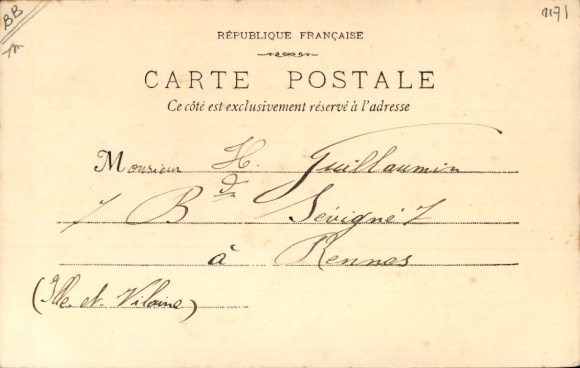 BB
1171
RÉPUBLIQUE FRANÇAISE
CARTE POSTALE
Ce côté est exclusivement réservé à l'adresse
Monsieur H. Guillaumin
7 Bd Sévigné 7
à Rennes
(Ille et Vilaine)